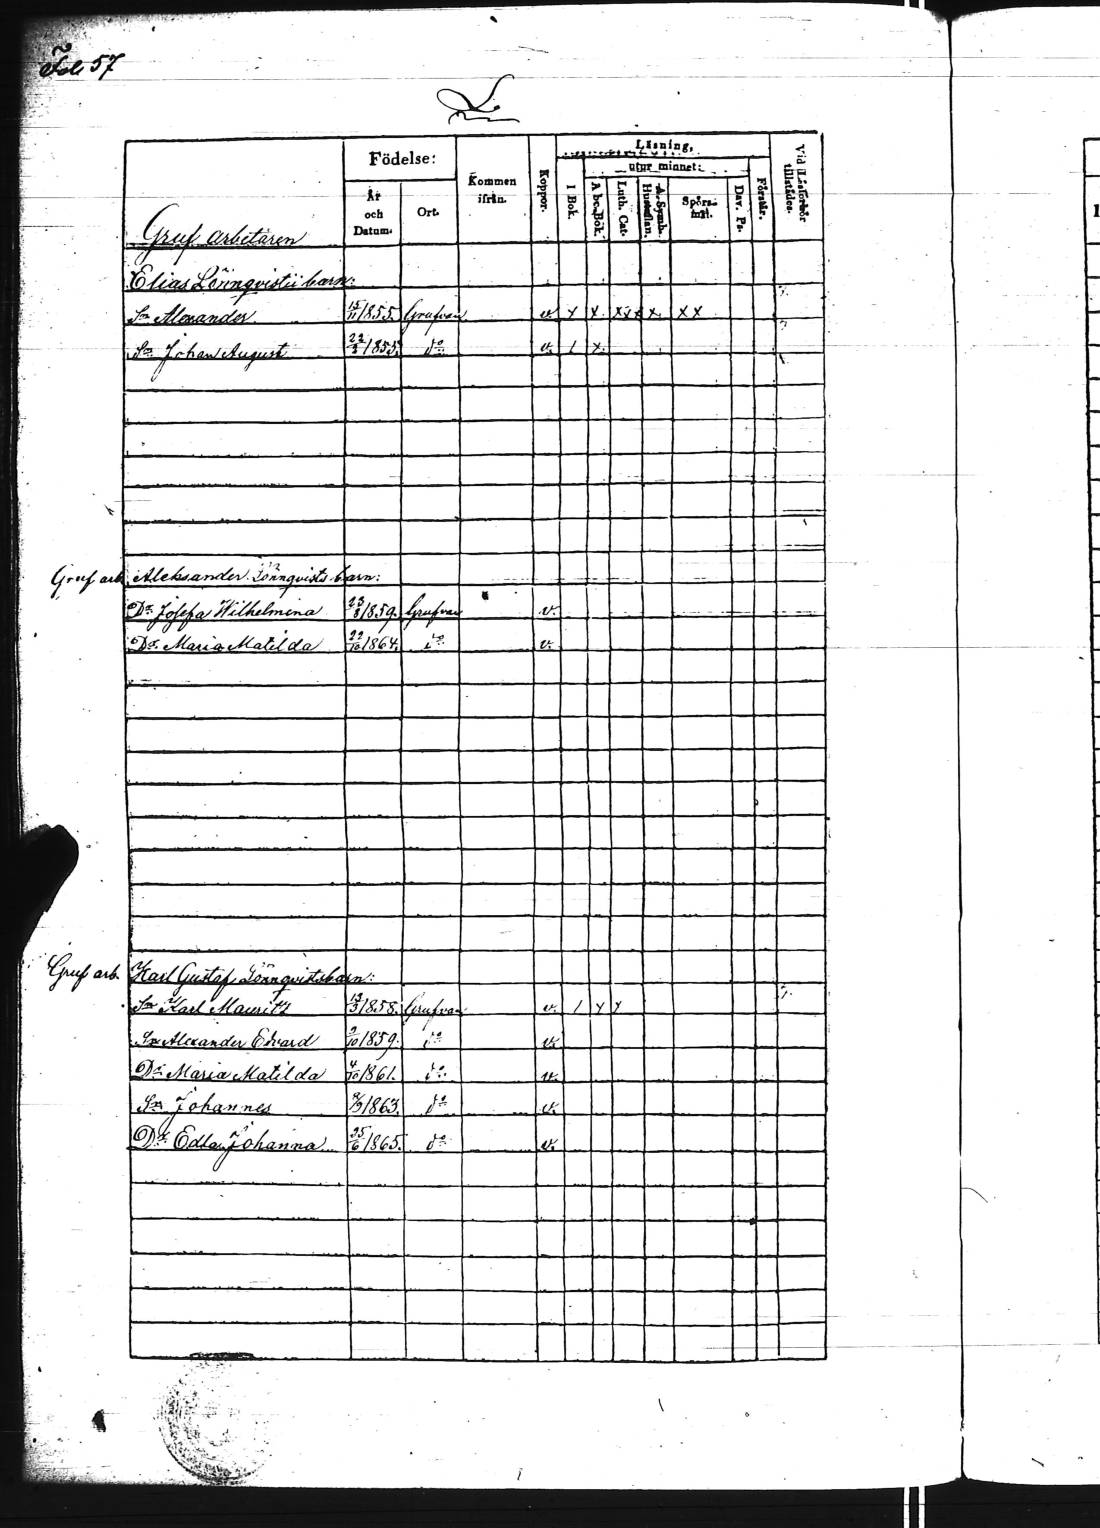 Fol. 57
Födelse:
Kommen ifrån.
Koppor.
Läsning,
utur minnet:
Vid Läsförhör tillstädes.
År och Datum.
Ort.
I Bok.
Abc-Bok.
Luth. Cat.
A. Symb. Hustaflan.
Spörsmål.
Dav. Ps.
Förstår.
Grufarbetaren
Elias Lönnqvists barn:
Sn Alexander 15/11 1855. Grufvan v. x x. xxx x. x x
Sn Johan August 1855. do v. 1 x.
Gruf arb. Aleksander Lönnqvists barn:
Dr Josefa Wilhelmina 23/8 1859. Grufvan v.
Dr. Maria Matilda 22/10 1864. do v.
Gruf arb. Karl Gustaf Lönnqvists barn:
Sn Karl Mauritz 13/3 1858. Grufvan v. 1 x x
Sn Alexander Edvard 2/10 1859. do v.
Dr Maria Matilda 4/10 1861. do v.
Sn Johannes 1863. do v.
Dr Edla Johanna 25/6 1865. do v.